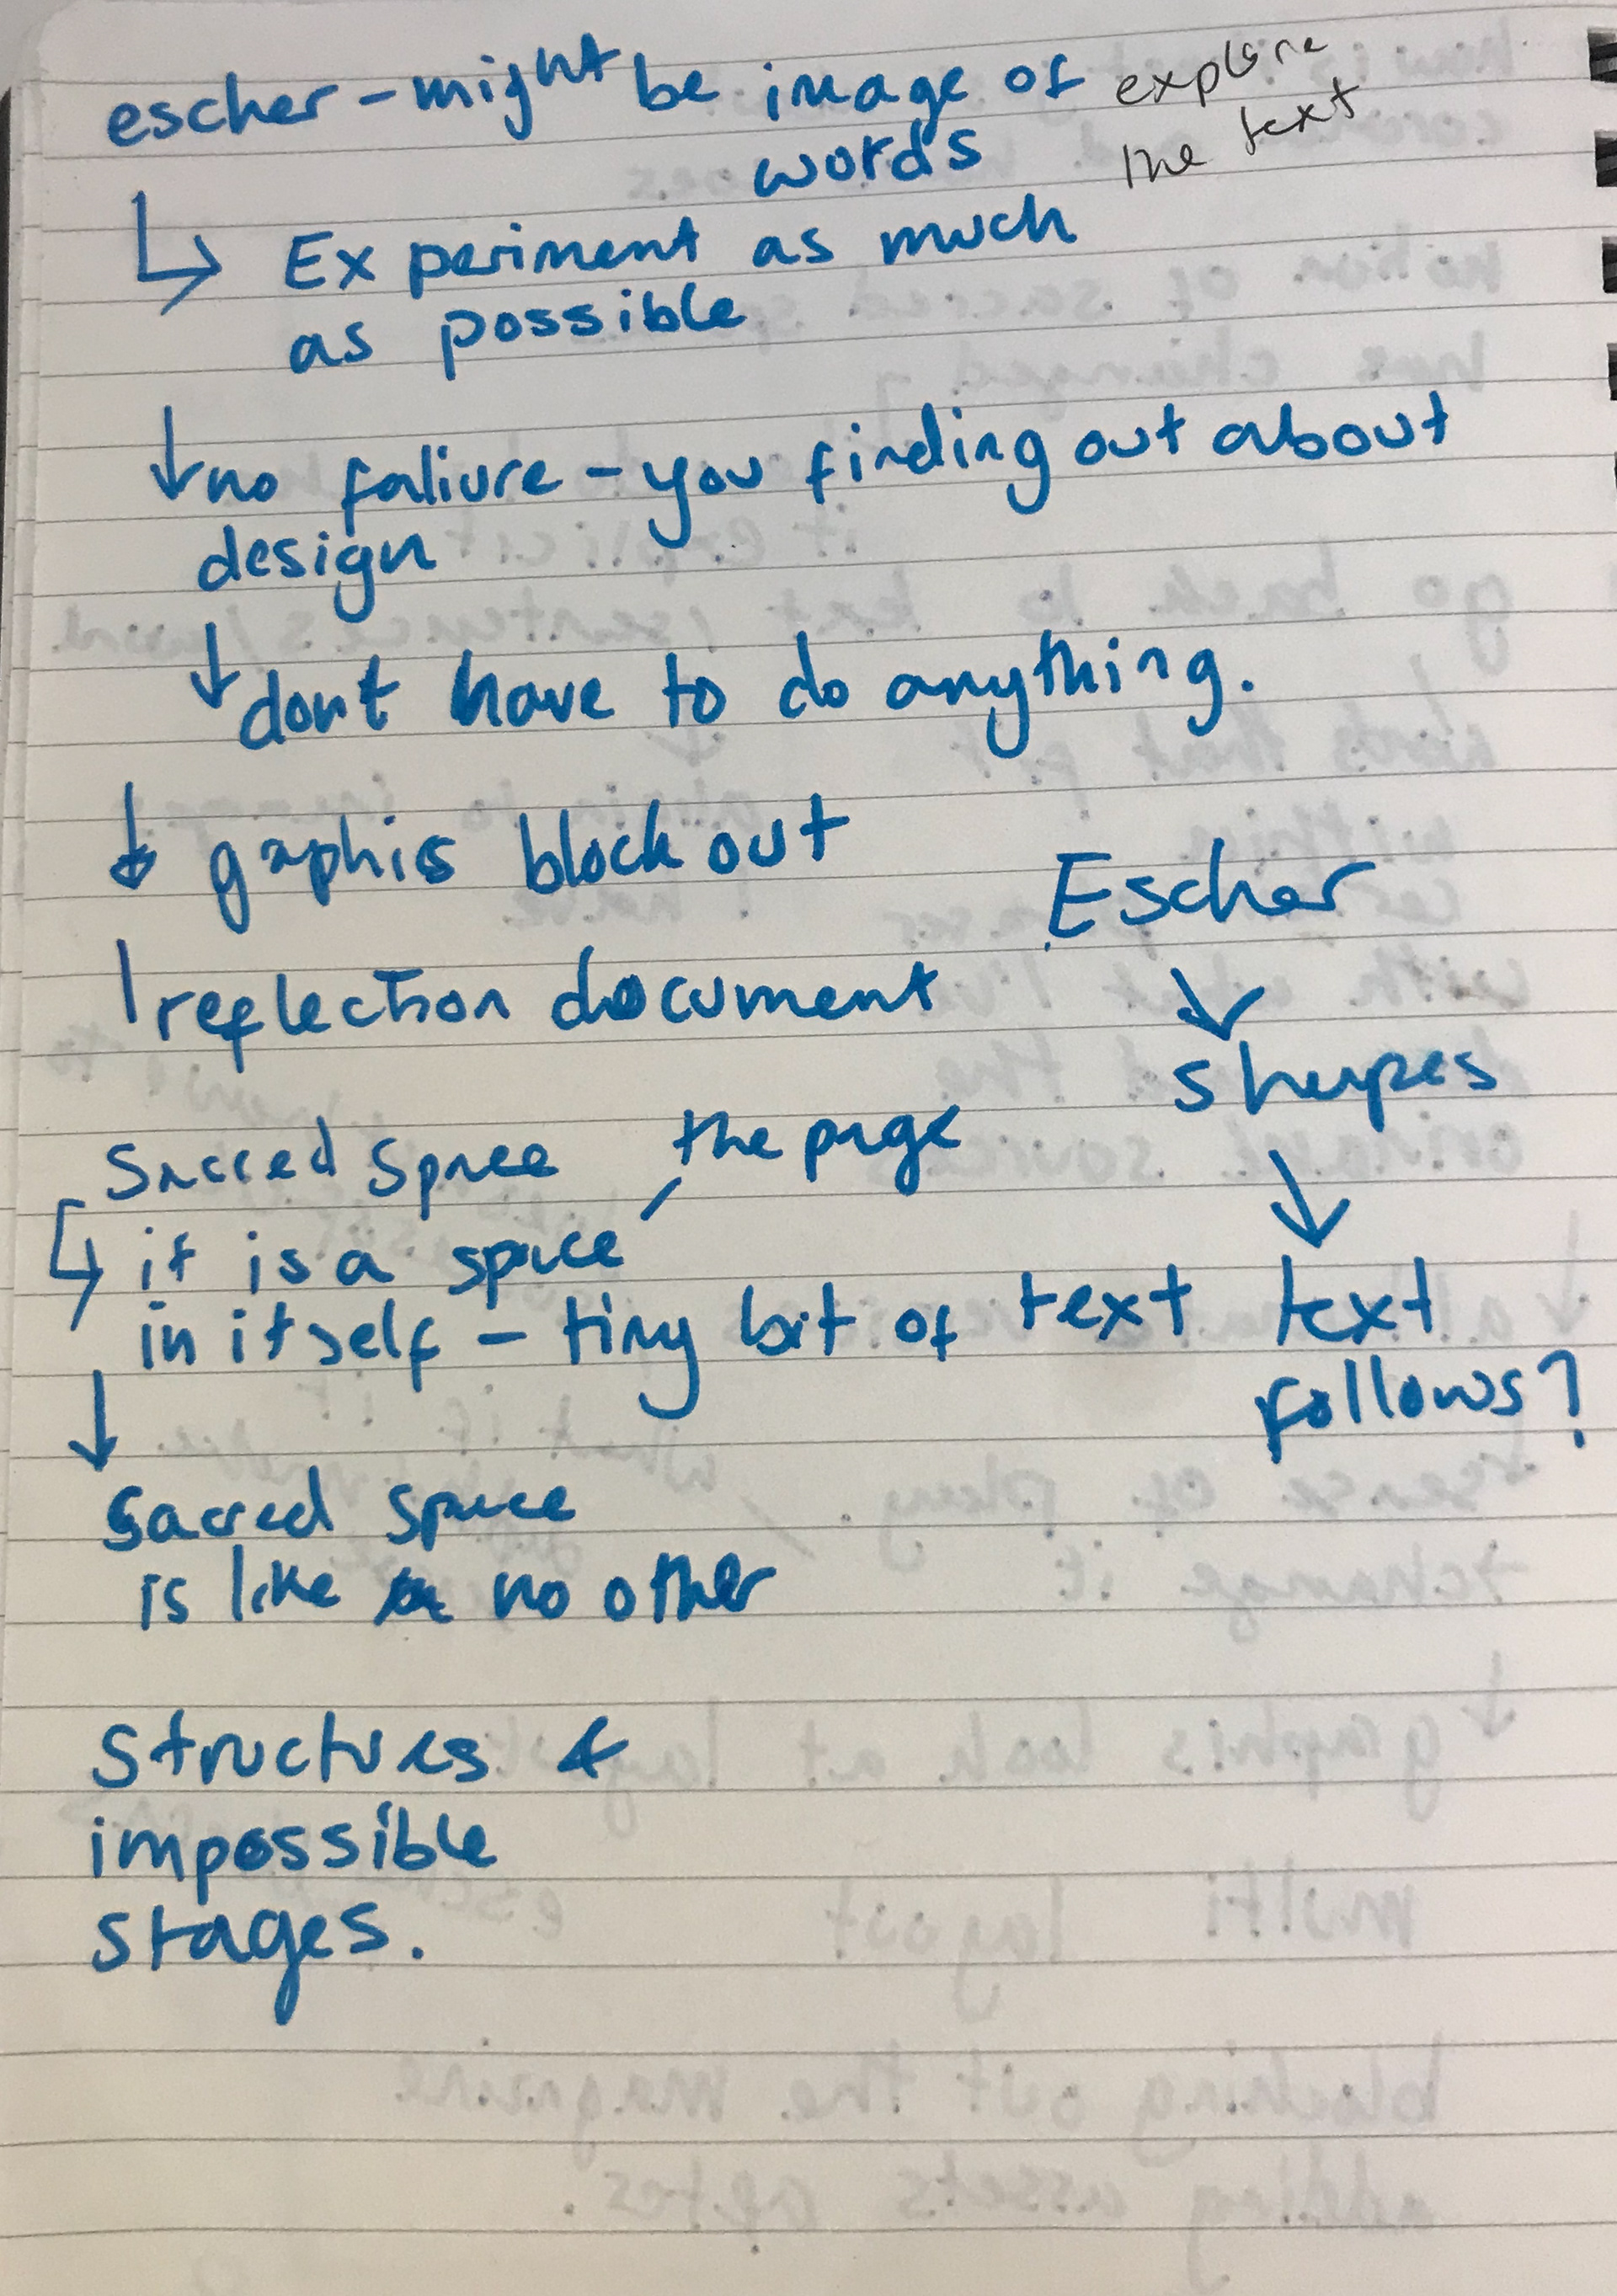 escher - might be image of
words
explore
the text
↳ Experiment as much
as possible
↓ no faliure - you finding out about
design
↓ dont have to do anything.
↓ gaphis block out
reflection document
Escher
↓
shapes
↓
text
follows?
Sacred Space
the page
↳ it is a space
in itself - tiny bit of text
↓
Sacred space
is like no other
Structures &
impossible
stages.